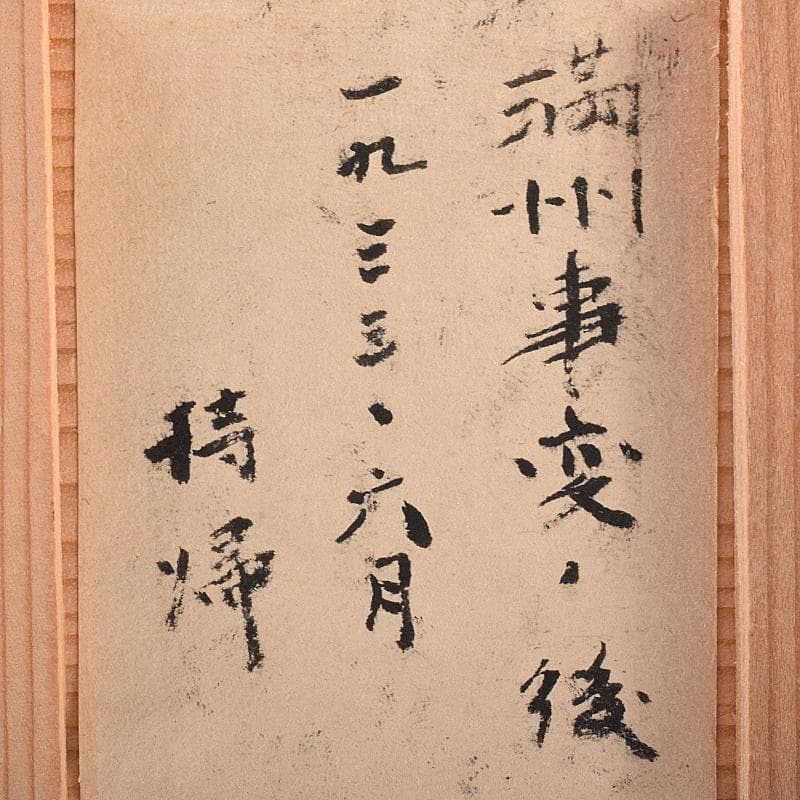 満州事変・後
一九三三・六月
持帰